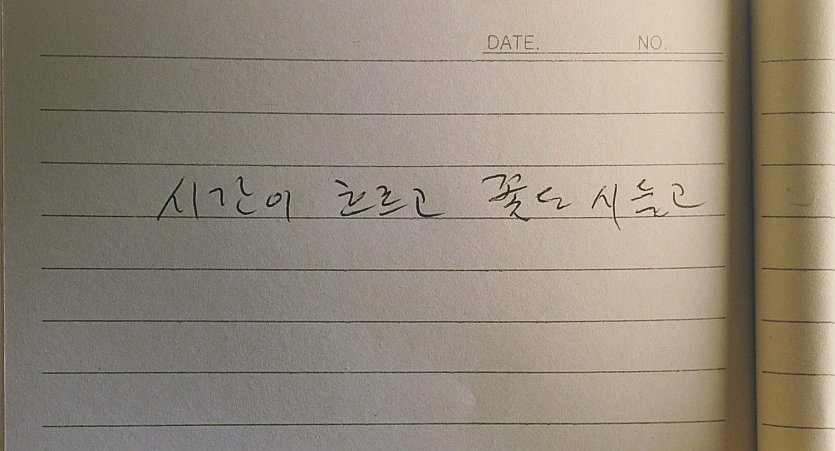 DATE. NO.
시간이 흐르고 꽃도 시들고